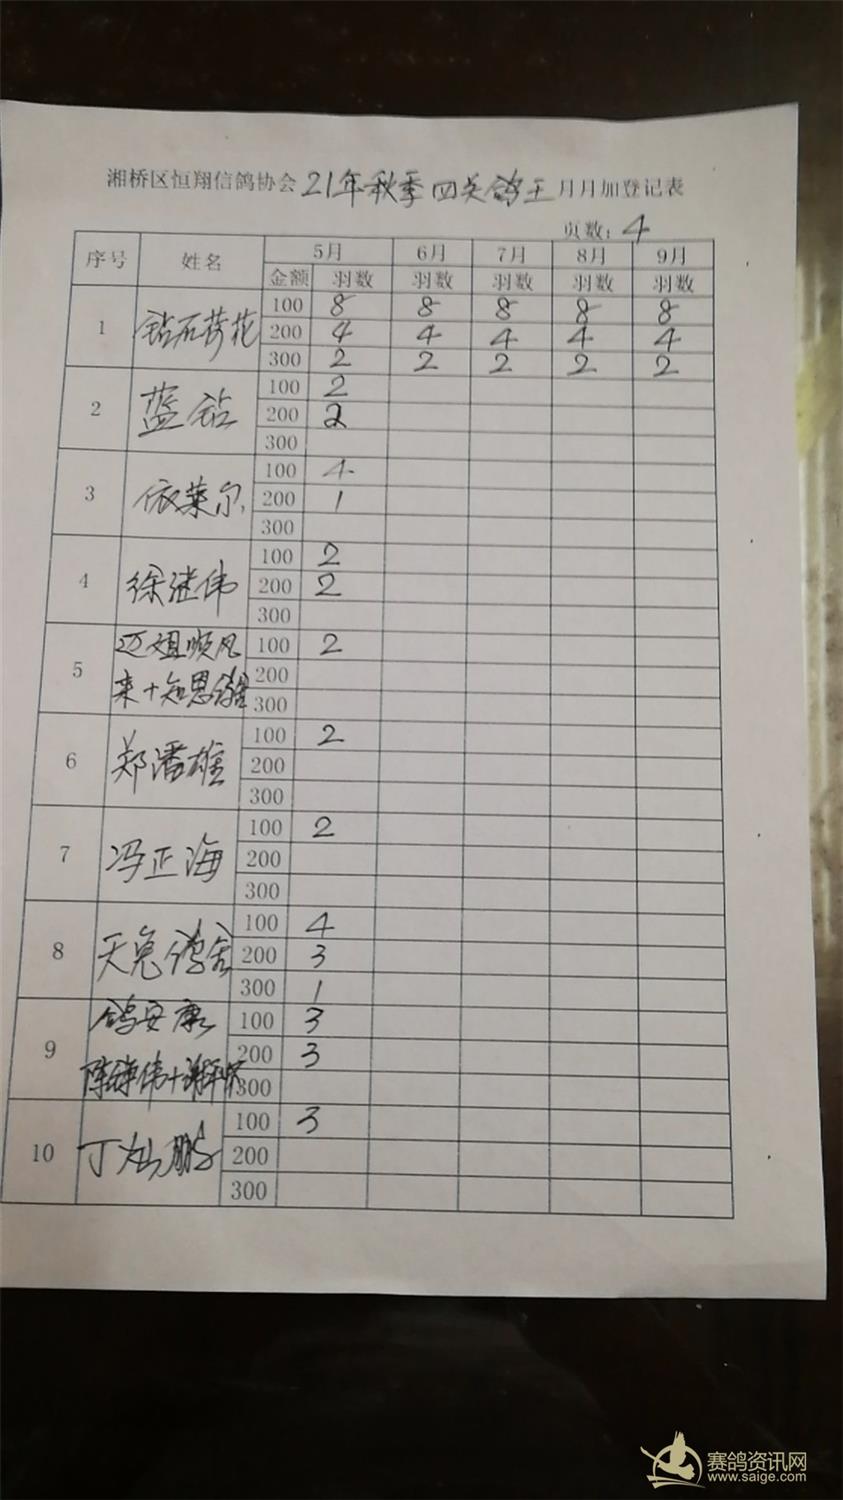 湘桥区恒翔信鸽协会 21年秋季四关鸽王 月月加登记表
页数：4
序号 姓名 5月 6月 7月 8月 9月
金额 羽数 羽数 羽数 羽数 羽数
1 钻石荷花 100 8 8 8 8 8
200 4 4 4 4 4
300 2 2 2 2 2
2 蓝钻 100 2
200 2
300
3 依莱尔 100 4
200 1
300
4 徐继伟 100 2
200 2
300
5 迈姐顺风 100 2
来+知恩鸽舍 200
300
6 郑潘雄 100 2
200
300
7 冯正海 100 2
200
300
8 天兔鸽舍 100 4
200 3
300 1
9 鸽安康 100 3
200 3
陈继伟+谢 300
10 丁灿鹏 100 3
200
300
赛鸽资讯网
www.saige.com